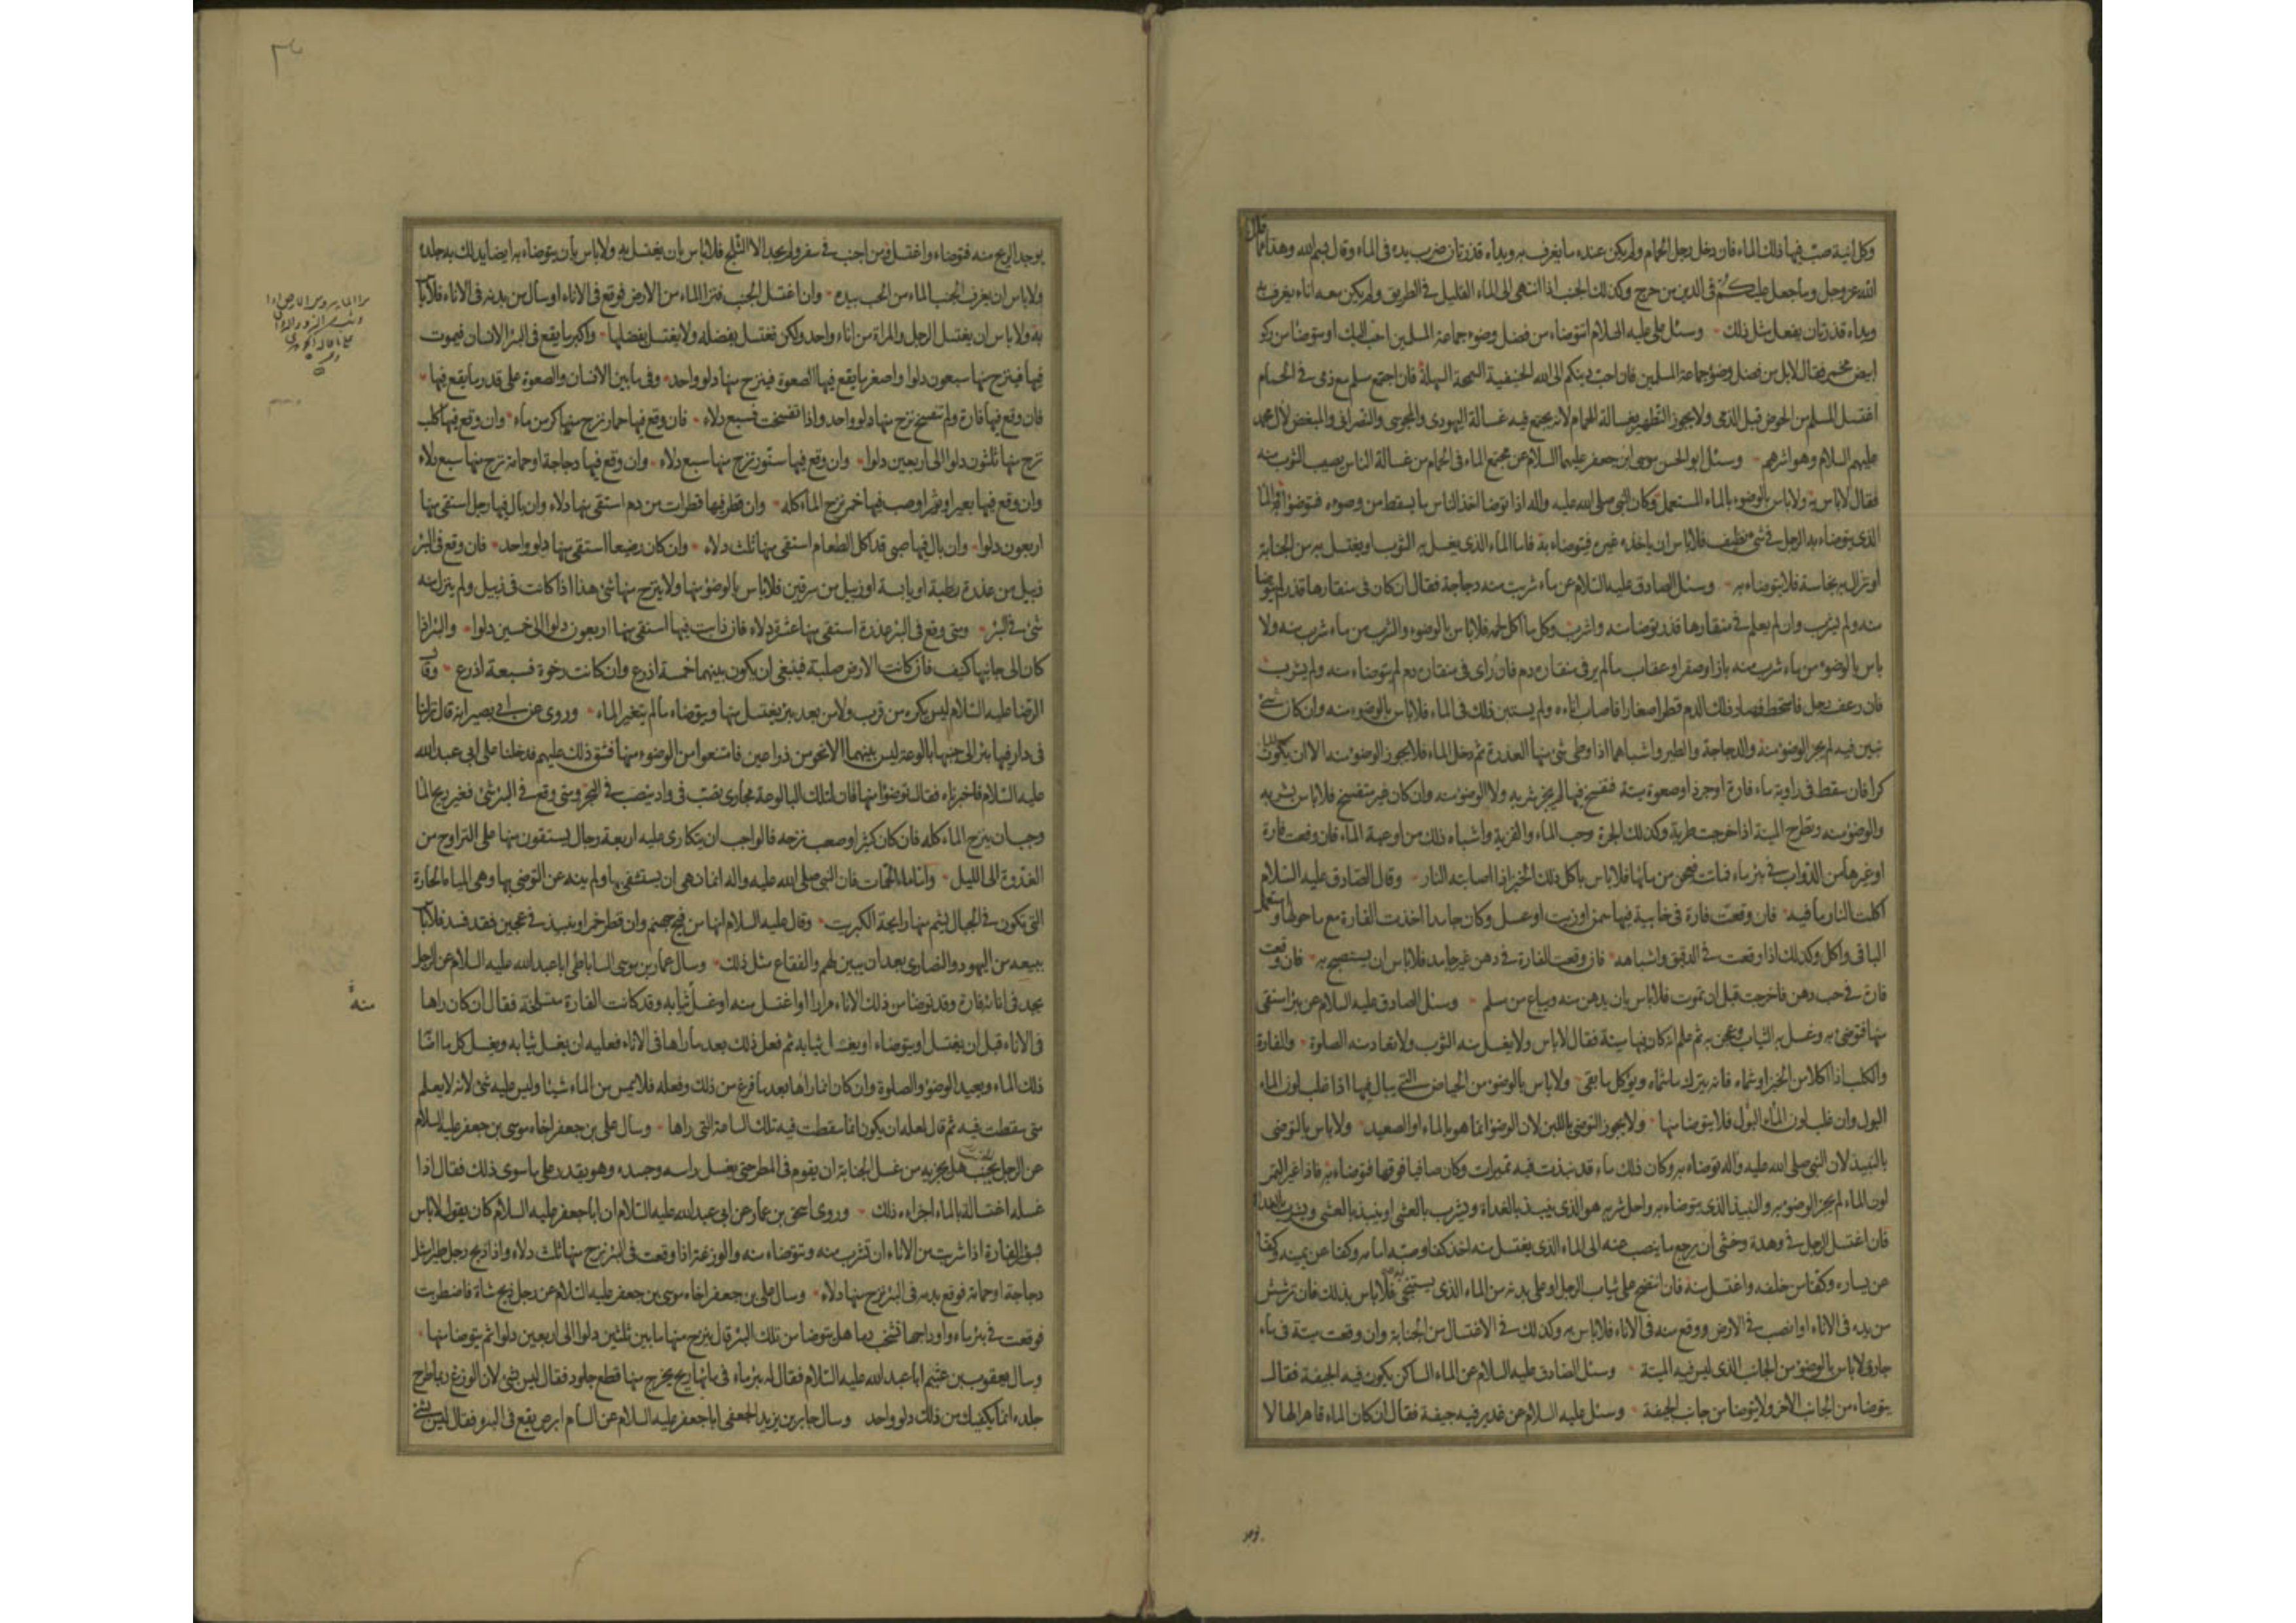 وكل آنية صب فيها ذلك الماء فان دخل رجل الحمام ولم يكن عنده ما يغرف به ويداه قذرتان ضرب يده فى الماء وقال بسم الله وهذا مما قال
الله عز وجل وما جعل عليكم فى الدين من حرج وكذلك الجنب اذا انتهى الى الماء القليل فى الطريق ولم يكن معه اناء يغرف به
ويداه قذرتان يفعل مثل ذلك وسئل على عليه السلام ايتوضاء من فضل وضوء جماعة المسلمين احب اليك او يتوضا من ركو
ابيض مخمر فقال لا بل من فضل وضوء جماعة المسلمين فان احب دينكم الى الله الحنيفية السمحة السهلة فان اجتمع مسلم مع ذمى فى الحمام
اغتسل المسلم من الحوض قبل الذمى ولا يجوز التطهير بغسالة الحمام لانه يجتمع فيه غسالة اليهودى والمجوسى والنصرانى والمبغض لآل محمد
عليهم السلام وهو اشرهم وسئل ابو الحسن موسى ابن جعفر عليهما السلام عن مجتمع الماء فى الحمام من غسالة الناس يصيب الثوب منه
فقال لا باس به ولا باس بالوضوء بالماء المستعمل وكان النبى صلى الله عليه واله اذا توضا اخذ الناس ما يسقط من وضوءه فتوضؤا به والماء
الذى يتوضاء به الرجل فى شئ نظيف فلا باس ان ياخذه غيره فيتوضاء به فاما الماء الذى يغسل به الثوب او يغتسل به من الجنابة
او تزال به نجاسة فلا يتوضاء به وسئل الصادق عليه السلام عن ماء شربت منه دجاجة فقال ان كان فى منقارها قذر لم يتوضا
منه ولم يشرب وان لم يعلم فى منقارها قذر توضا منه واشرب وكل ما اكل لحمه فلا باس بالوضوء والشرب من ماء شرب منه ولا
باس بالوضوء من ماء شرب منه باز او صقر او عقاب ما لم ير فى منقاره دم فان راى فى منقاره دم لم يتوضاء منه ولم يشرب
فان رعف رجل فامتخط فصار ذلك الدم قطرا صغارا فاصاب اناءه ولم يستبن ذلك فى الماء فلا باس بالوضوء منه وان كان شئ
تبين فيه لم يجز الوضوء منه والدجاجة والطير واشباهما اذا وطى شئ منها العذرة ثم دخل الماء فلا يجوز الوضوء منه الا ان يكون الماء
كرا فان سقط فى راوية ماء فارة او جرذ او صعوة ميتة فتفسخ فيها لم يجز شربه ولا الوضوء منه وان كان غير متفسخ فلا باس بشربه
والوضوء منه وتطرح الميتة اذا خرجت طرية وكذلك الجرة وحب الماء والقربة واشباه ذلك من اوعية الماء فان وقعت فارة
او غيرها من الدواب فى بئر ماء فماتت فعجن من مائها فلا باس باكل ذلك الخبز اذا اصابته النار وقال الصادق عليه السلام
اكلت النار ما فيه فان وقعت فارة فى خابية فيها سمن او زيت او عسل وكان جامدا اخذت الفارة مع ما حولها واستعمل
الباقى واكل وكذلك اذا وقعت فى الدقيق واشباهه فان وقعت الفارة فى دهن غير جامد فلا باس ان يستصبح به فان وقعت
فارة فى حب دهن فاخرجت قبل ان تموت فلا باس بان يدهن منه ويباع من مسلم وسئل الصادق عليه السلام عن بئر استقى
منها فتوضئ به وغسل به الثياب وعجن به ثم علم انه كان فيها ميتة فقال لا باس ولا يغسل منه الثوب ولا تعاد منه الصلوة والفارة
والكلب اذا اكلا من الخبز او شماه فانه يترك ما شماه ويؤكل ما بقى ولا باس بالوضوء من الحياض التى يبال فيها اذا غلب لون الماء
البول وان غلب لون الماء البول فلا يتوضا منها ولا يجوز التوضى باللبن لان الوضوء انما هو بالماء او الصعيد ولا باس بالتوضى
بالنبيذ لان النبى صلى الله عليه وآله توضاء به وكان ذلك ماء قد نبذت فيه تميرات وكان صافيا فوقها فتوضاء به فاذا غير التمر
لون الماء لم يجز الوضوء به والنبيذ الذى يتوضاء به واحل شربه هو الذى ينبذ بالغداة ويشرب بالعشى او ينبذ بالعشى ويشرب بالغداة
فان اغتسل الرجل فى وهدة وخشى ان يرجع ما ينصب عنه الى الماء الذى يغتسل منه اخذ كفا وصبه امامه وكفا عن يمينه وكفا
عن يساره وكفا من خلفه واغتسل منه فان انتضح على ثياب الرجل او على بدنه من الماء الذى يستنجى به فلا باس بذلك فان ترشش
من يده فى الاناء او انصب فى الارض ووقع منه فى الاناء فلا باس به وكذلك فى الاغتسال من الجنابة وان وقعت ميتة فى ماء
جار فلا باس بالوضوء من الجانب الذى ليس فيه الميتة وسئل الصادق عليه السلام عن الماء الساكن يكون فيه الجيفة فقال
يتوضاء من الجانب الاخر ولا يتوضا من جانب الجيفة وسئل عليه السلام عن غدير فيه جيفة فقال ان كان الماء قاهرا لها لا
يوجد الريح منه فتوضاء واغتسل ومن اجنب فى سفر ولم يجد الا الثلج فلا باس بان يغتسل به ولا باس بأن يتوضاء به ايضا يدلك به جلده
ولا باس ان يغرف الجنب الماء من الحب بيده وان اغتسل الجنب فنزا الماء من الارض فوقع فى الاناء او سال من بدنه فى الاناء فلا باس
به ولا باس ان يغتسل الرجل والمراة من اناء واحد ولكن تغتسل بفضله ولا يغتسل بفضلها واكبر ما يقع فى البئر الانسان فيموت
فيها فينزح منها سبعون دلوا واصغر ما يقع فيها الصعوة فينزح منها دلو واحد وفى ما بين الانسان والصعوة على قدر ما يقع فيها
فان وقع فيها فارة ولم تتفسخ نزح منها دلو واحد واذا تفسخت فسبع دلاء فان وقع فيها حمار نزح منها كر من ماء وان وقع فيها كلب
نزح منها ثلثون دلوا الى اربعين دلوا وان وقع فيها سنور نزح منها سبع دلاء وان وقع فيها دجاجة او حمامة نزح منها سبع دلاء
وان وقع فيها بعير او ثور او صب فيها خمر نزح الماء كله وان قطر فيها قطرات من دم استقى منها دلاء وان بال فيها رجل استقى منها
اربعون دلوا وان بال فيها صبى قد اكل الطعام استقى منها ثلث دلاء وان كان رضيعا استقى منها دلو واحد فان وقع فى البئر
زبيل من عذرة رطبة او يابسة او زبيل من سرقين فلا باس بالوضوء منها ولا ينزح منها شئ هذا اذا كانت فى زبيل ولم ينزل منه
شئ فى البئر ومتى وقع فى البئر عذرة استقى منها عشرة دلاء فان ذابت فيها استقى منها اربعون دلوا الى خمسين دلوا والبئر اذا
كان الى جانبها كنيف فان كانت الارض صلبة فينبغى ان يكون بينهما خمسة اذرع وان كانت رخوة فسبعة اذرع وقال
الرضا عليه السلام ليس يكره من قرب ولا من بعد بئر يغتسل منها ويتوضاء ما لم يتغير الماء وروى عن ابى بصير انه قال نزلنا
فى دار فيها بئر الى جنبها بالوعة ليس بينهما الا نحو من ذراعين فامتنعوا من الوضوء منها فشق ذلك عليهم فدخلنا على ابى عبد الله
عليه السلام فاخبرناه فقال توضؤا منها فان لتلك البالوعة مجارى تصب فى واد ينصب فى البحر ومتى وقع فى البئر شئ فغير ريح الماء
وجب ان ينزح الماء كله فان كان كثيرا وصعب نزحه فالواجب ان يتكارى عليه اربعة رجال يستقون منها على التراوح من
الغدوة الى الليل واما ماء الحمات فان النبى صلى الله عليه واله انما نهى ان يستشفى بها ولم ينه عن التوضى بها وهى المياه الحارة
التى تكون فى الجبال يشم منها رايحة الكبريت وقال عليه السلام انها من فيح جهنم وان قطر خمر او نبيذ فى عجين فقد فسد فلا باس
ببيعه من اليهود والنصارى بعد ان يبين لهم والفقاع مثل ذلك وسال عمار بن موسى الساباطى ابا عبد الله عليه السلام عن الرجل
يجد فى انائه فارة وقد توضا من ذلك الاناء مرارا او اغتسل منه او غسل ثيابه وقد كانت الفارة متسلخة فقال ان كان راها
منه
فى الاناء قبل ان يغتسل او يتوضاء او يغسل ثيابه ثم فعل ذلك بعد ما راها فى الاناء فعليه ان يغسل ثيابه ويغسل كل ما اصابه
ذلك الماء ويعيد الوضوء والصلوة وان كان انما راها بعد ما فرغ من ذلك وفعله فلا يمس من الماء شيئا وليس عليه شئ لانه لا يعلم
متى سقطت فيه ثم قال لعله ان يكون انما سقطت فيه تلك الساعة التى راها وسال على بن جعفر اخاه موسى بن جعفر عليه السلام
عن الرجل يجنب هل يجزيه من غسل الجنابة ان يقوم فى المطر حتى يغسل راسه وجسده وهو يقدر على ما سوى ذلك فقال اذا
غسله اغتساله بالماء اجزاه ذلك وروى اسحق بن عمار عن ابى عبد الله عليه السلام ان ابا جعفر عليه السلام كان يقول لا باس
بسؤر الفارة اذا شربت من الاناء ان تشرب منه وتتوضاء منه والوزغة اذا وقعت فى البئر نزح منها ثلث دلاء واذا ذبح رجل طيرا مثل
دجاجة او حمامة فوقع بدمه فى البئر نزح منها دلاء وسال على بن جعفر اخاه موسى بن جعفر عليه السلام عن رجل ذبح شاة فاضطربت
فوقعت فى بئر ماء واوداجها تشخب دما هل يتوضا من تلك البئر قال ينزح منها ما بين ثلثين دلوا الى اربعين دلوا ثم يتوضا منها
وسال يعقوب بن عثيم ابا عبد الله عليه السلام فقال له بئر ماء فى مائها ريح يخرج منها قطع جلود فقال ليس بشئ لان الوزغ ربما طرح
جلده انما يكفيك من ذلك دلو واحد وسال جابر بن يزيد الجعفى ابا جعفر عليه السلام عن السام ابرص يقع فى البئر فقال ليس بشئ